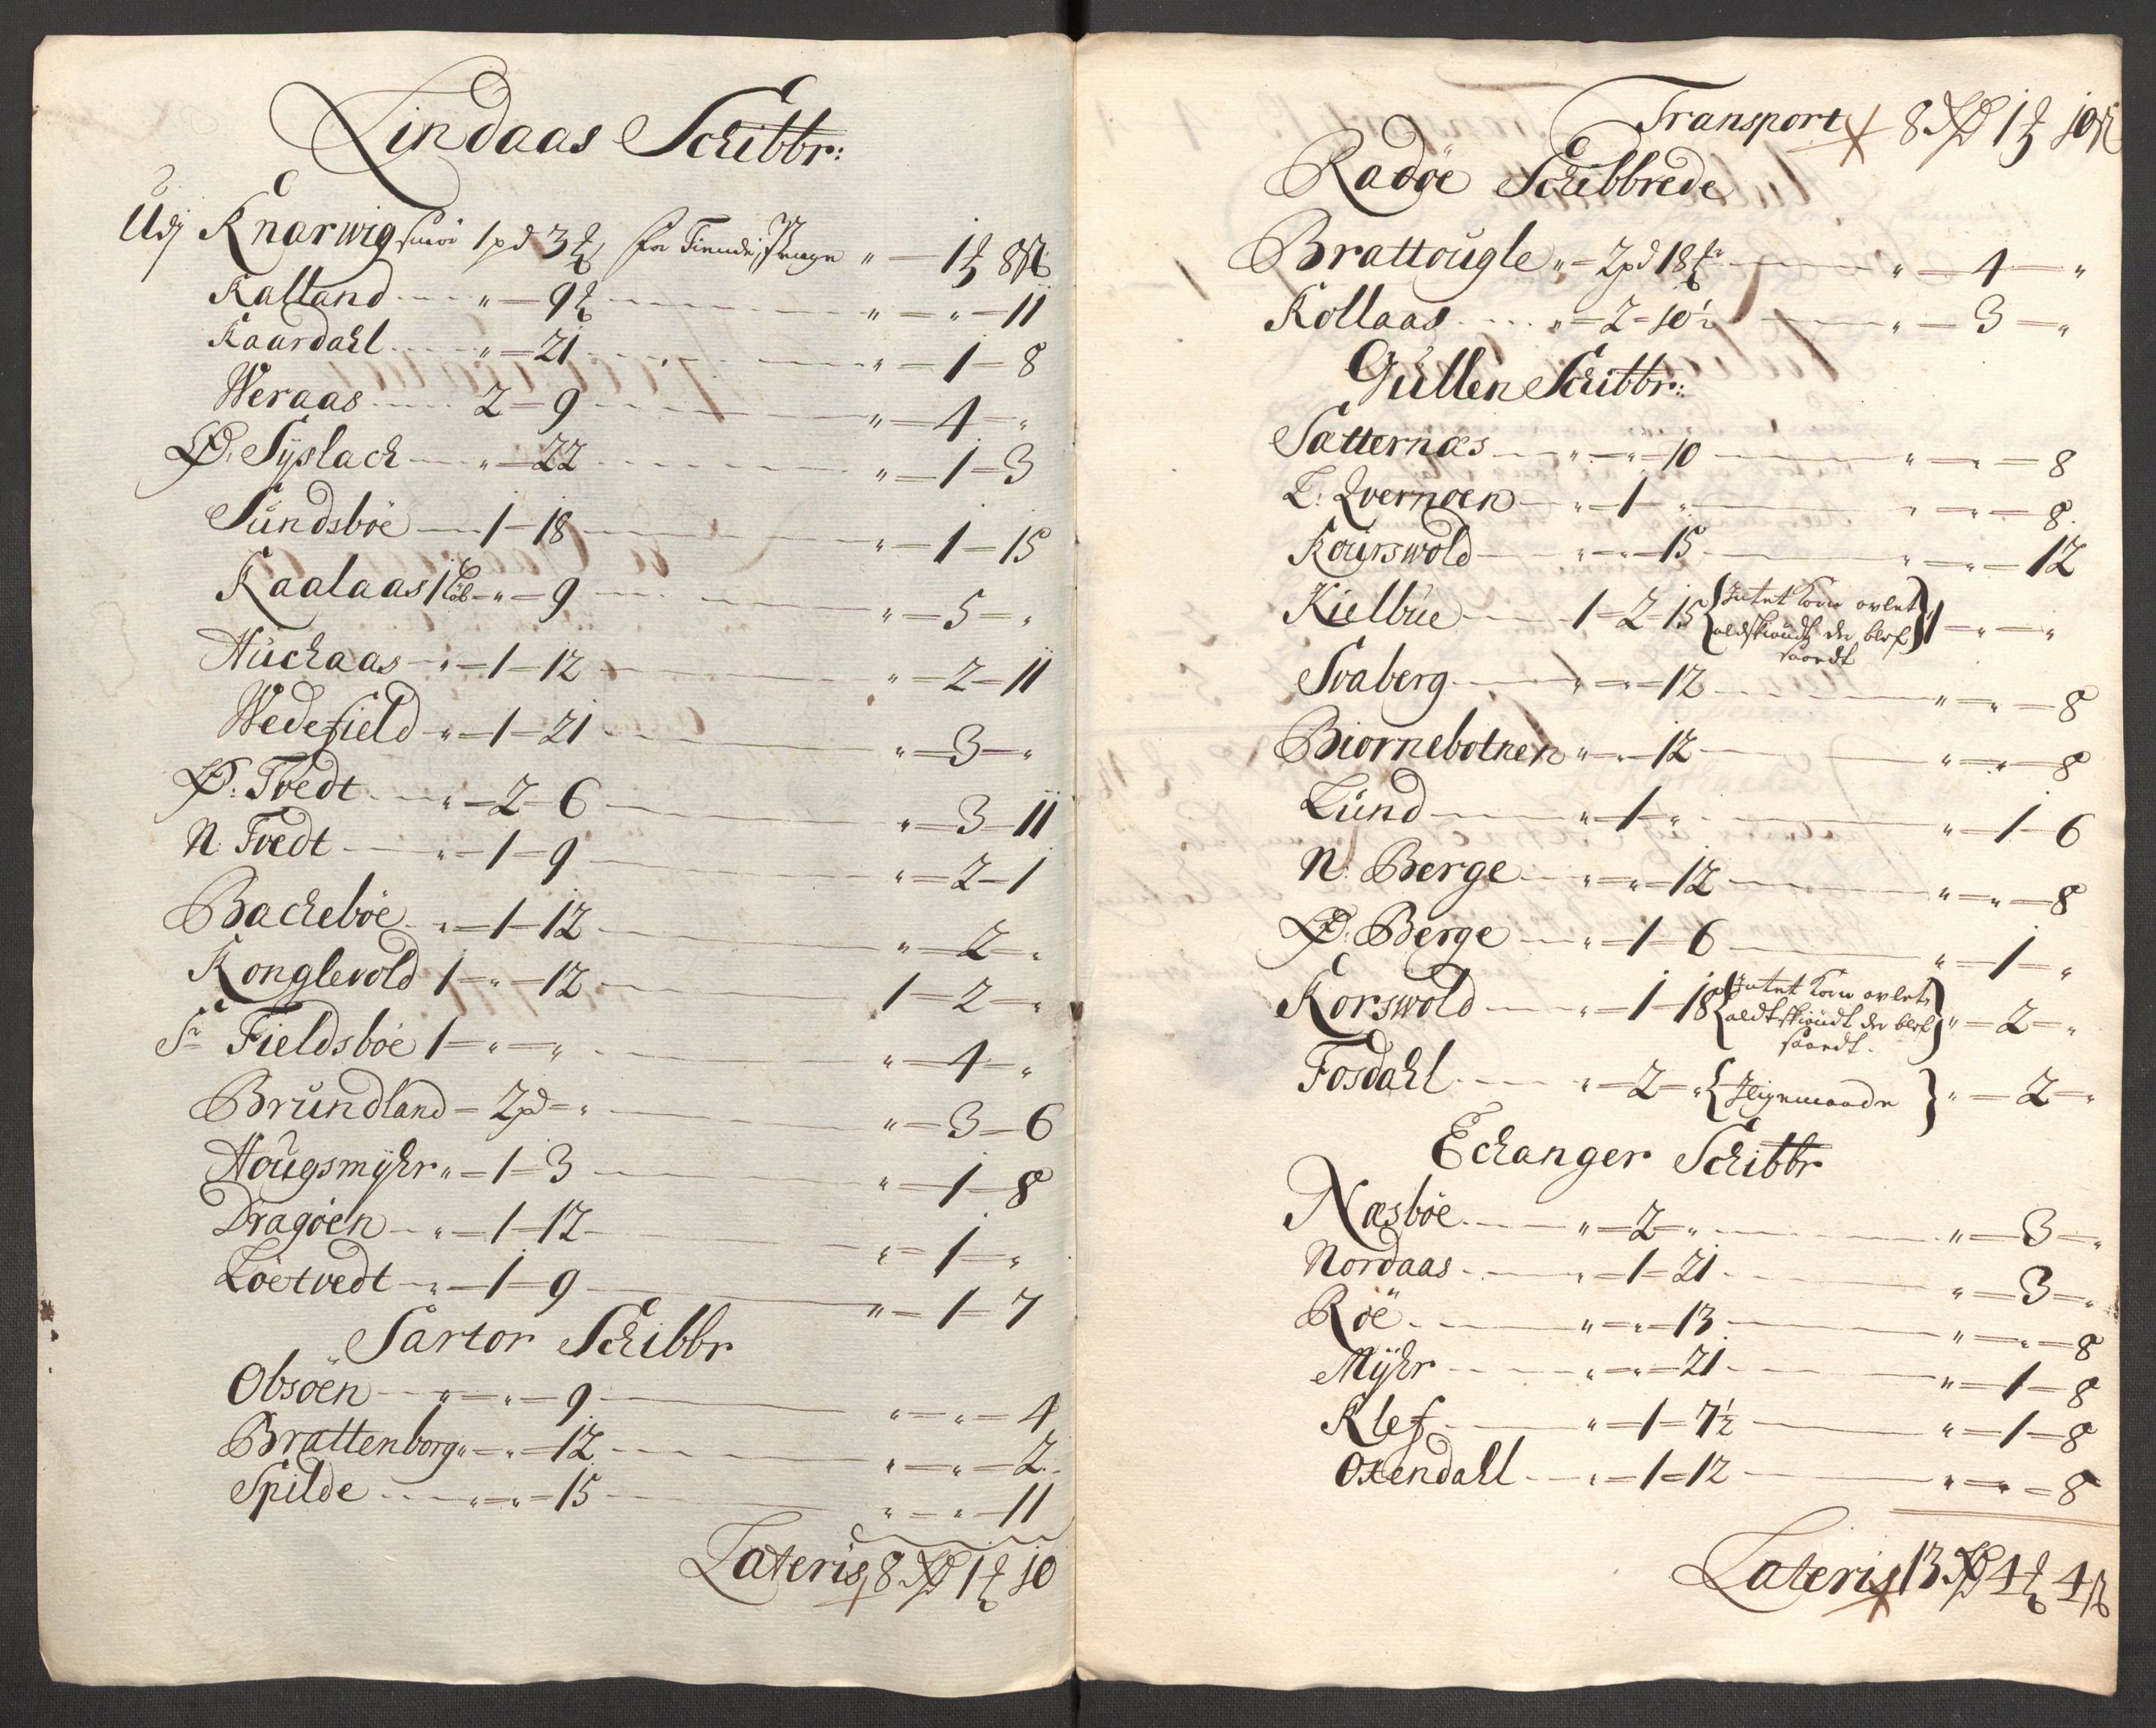 Lindaas Schibbr:
Udj Knarwig smör 1 pd 3 ℔ for Tiende Penge " — 1 ℔ 8 ß
Kalland " — 9 ℔ " — " — 11
Kaardahl " — 21 " — 1 — 8
Weraas 2 — 9 " — 4 — "
Ø. Syslach " — 22 " — 1 — 3
Sundsböe — 1 — 18 " — 1 — 15
Kaalaas 1 Löb — " — 9 " — 5 — "
Huchaas — " — 1 — 12 " — 2 — 11
Wedefield — " — 1 — 21 " — 3 — "
Ø: Tvedt — " — 2 — 6 " — 3 — 11
N: Tvedt — " — 1 — 9 " — 2 — 1
Bacheböe — " — 1 — 12 " — 2 — "
Konglevold 1 — " — 12 1 — 2 — "
Fieldsböe 1 — " — " " — 4 — "
Brundland — 2 pd — " " — 3 — 6
Hougsmyhr " — 1 — 3 " — 1 — 8
Dragöen — " — 1 — 12 " — 1 — "
Löetvedt — " — 1 — 9 " — 1 — 7
Sartor Schibbr
Obsöen — " — " — 9 " — " — 4
Brattenborg " — " — 12 " — " — 2
Spilde — " — " — 15 " — " — 11
Lateris 8 Rd 1 ℔ 10
Transport 8 Rd 1 ℔ 10 ß
Radöe Schibbrede
Brattougle " — 2 pd 18 ℔ " — 4 — "
Kollaas " — 2 — 10½ " — 3 — "
Gullen Schibbr:
Sætternæs — " — " — 10 " — " — 8
L: Qvernöen — " — 1 — " " — " — 8
Kourswold — " — " — 15 " — " — 12
Kielbue — 1 — 2 — 15 {Intet Korn avlet
aldt der blef} 1 — " — "
Svaberg — " — " — 12 " — " — 8
Biornebotnen " — " — 12 " — " — 8
Lund — " — 1 — " " — 1 — 6
N: Berge — " — " — 12 " — " — 8
Ø: Berge — " — 1 — 6 " — 1 — "
Korswold — " — 1 — 18 {Intet Korn avlet
aldt der blef} " — 2 — "
Fosdahl — " — 2 — " {Jligemaade} " — 2 — "
Echanger Schibbr
Næsböe — " — 2 — " " — 3 — "
Nordaas — " — 1 — 21 " — 3 — "
Röe — " — " — 13 " — " — 8
Myhr — " — " — 21 " — 1 — 8
Klef — " — 1 — 7½ " — 1 — 8
Oxendahl — " — 1 — 12 " — " — 8
Lateris 13 Rd 4 ℔ 4 ß